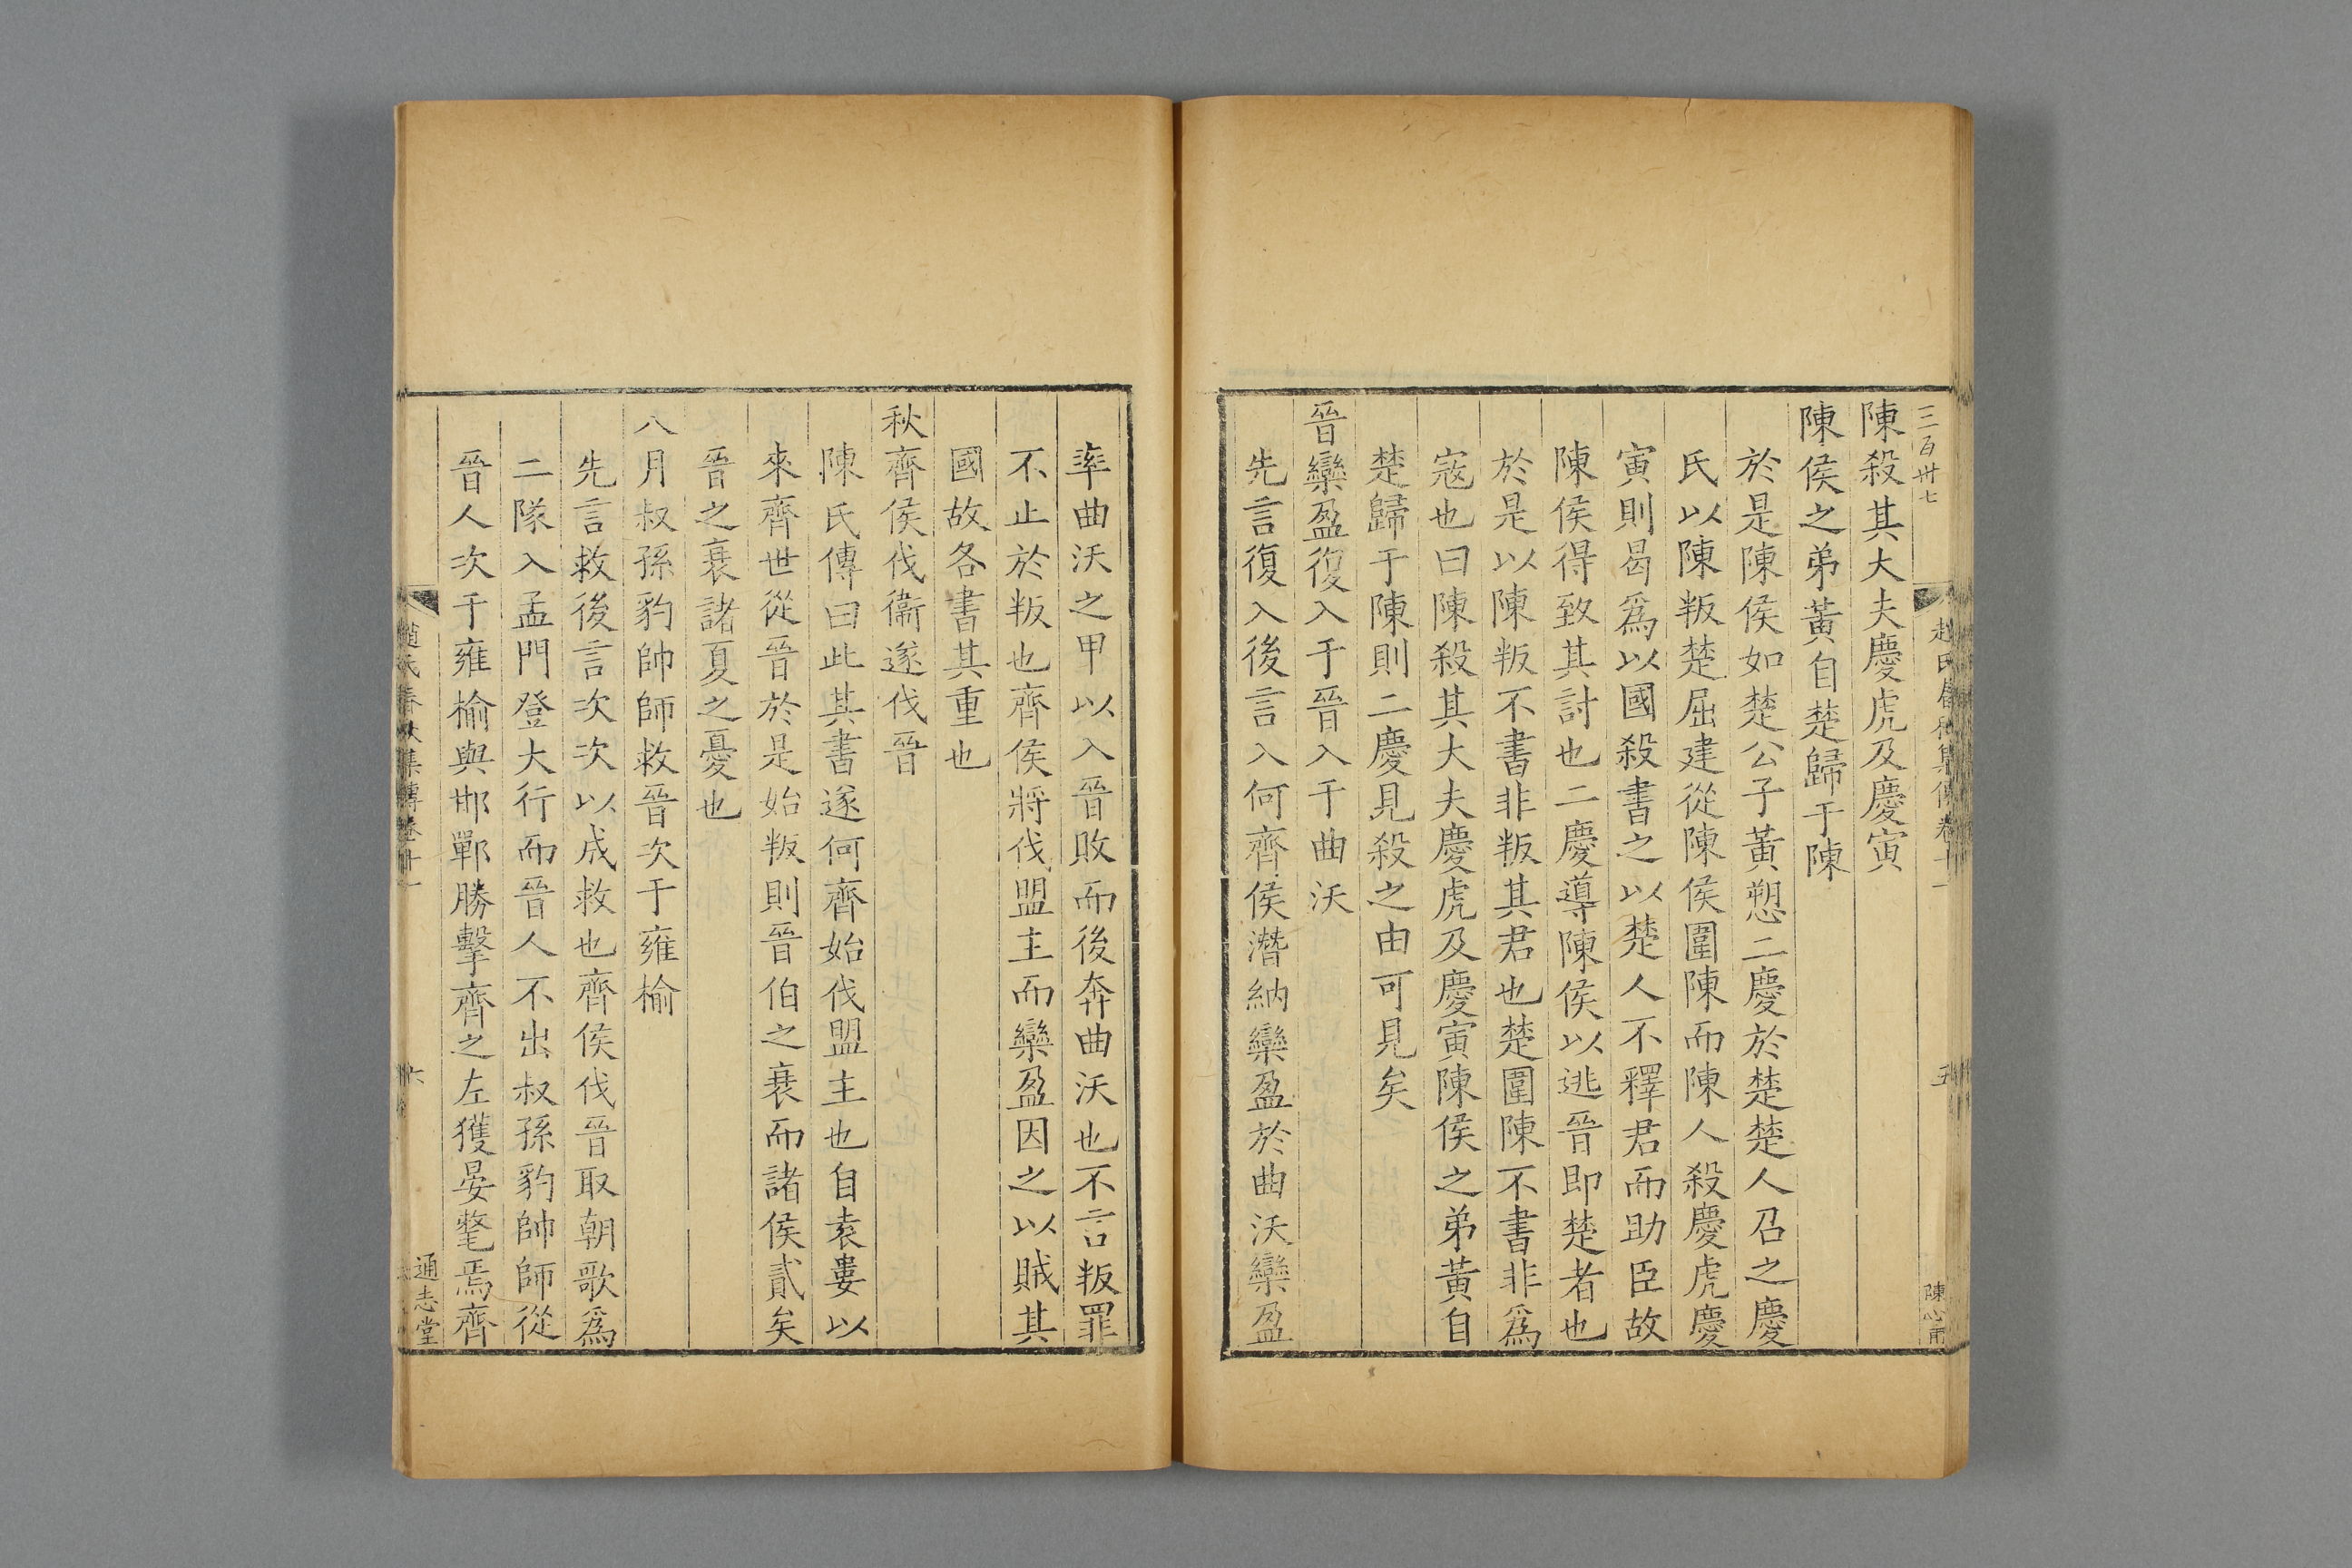 三百卅七
趙氏春秋集傳卷十一
五
陳心甫
陳殺其大夫慶虎及慶寅
陳侯之弟黃自楚歸于陳
於是陳侯如楚公子黃愬二慶於楚楚人召之慶
氏以陳叛楚屈建從陳侯圍陳而陳人殺慶虎慶
寅則曷爲以國殺書之以楚人不釋君而助臣故
陳侯得致其討也二慶導陳侯以逃晉即楚者也
於是以陳叛不書非叛其君也楚圍陳不書非爲
寇也曰陳殺其大夫慶虎及慶寅陳侯之弟黃自
楚歸于陳則二慶見殺之由可見矣
晉欒盈復入于晉入于曲沃
先言復入後言入何齊侯潛納欒盈於曲沃欒盈
率曲沃之甲以入晉敗而後奔曲沃也不言叛罪
不止於叛也齊侯將伐盟主而欒盈因之以賊其
國故各書其重也
秋齊侯伐衞遂伐晉
陳氏傳曰此其書遂何齊始伐盟主也自袁婁以
來齊世從晉於是始叛則晉伯之衰而諸侯貳矣
晉之衰諸夏之憂也
八月叔孫豹帥師救晉次于雍榆
先言救後言次次以成救也齊侯伐晉取朝歌爲
二隊入孟門登大行而晉人不出叔孫豹帥師從
晉人次于雍榆與邯鄲勝擊齊之左獲晏氂焉齊
趙氏春秋集傳卷十一
六
通志堂